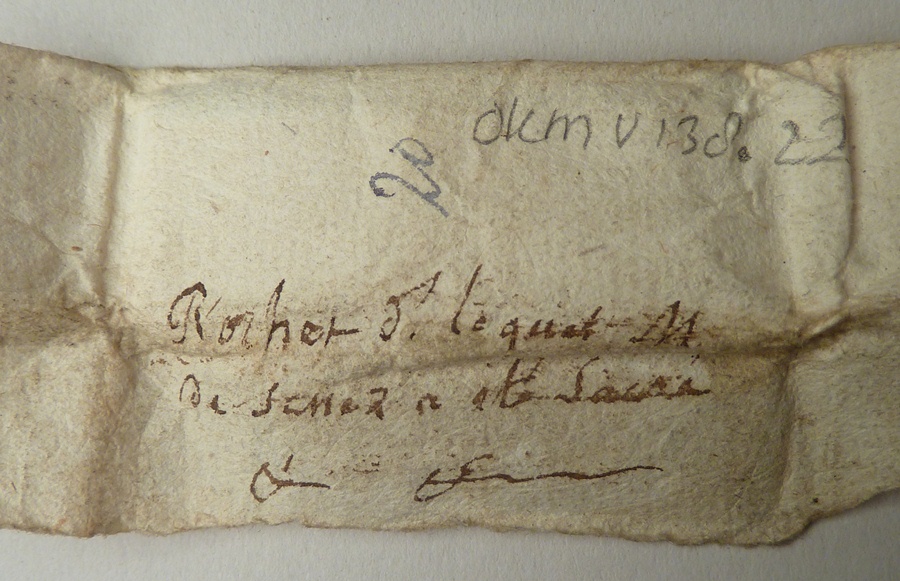 dkm v 138. 22
20
Rochet d. lequel M
de senez a été Sacré
& &